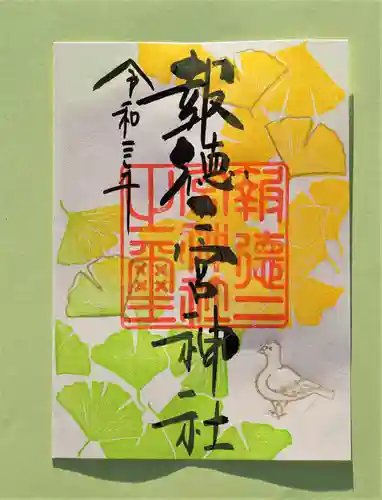 報徳二宮神社
令和三年
報徳二
宮神社